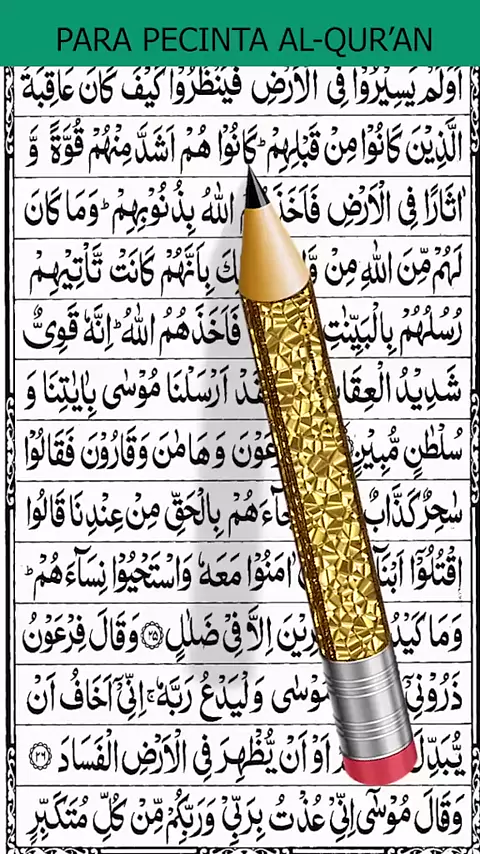 PARA PECINTA AL-QUR'AN
اَوَلَمْ يَسِيْرُوْا فِى الْاَرْضِ فَيَنْظُرُوْا كَيْفَ كَانَ عَاقِبَةُ
الَّذِيْنَ كَانُوْا مِنْ قَبْلِهِمْ ؕ كَانُوْا هُمْ اَشَدَّ مِنْهُمْ قُوَّةً وَّ
اٰثَارًا فِى الْاَرْضِ اللّٰهُ بِذُنُوْبِهِمْ ؕ وَمَا كَانَ
لَهُمْ مِّنَ اللّٰهِ مِنْ بِاَنَّهُمْ كَانَتْ تَّاْتِيْهِمْ
رُسُلُهُمْ بِالْبَيِّنٰتِ فَاَخَذَهُمُ اللّٰهُ ؕ اِنَّهٗ قَوِىٌّ
شَدِيْدُ اَرْسَلْنَا مُوْسٰى بِاٰيٰتِنَا وَ
سُلْطٰنٍ مُّبِيْنٍ وَهَامٰنَ وَقَارُوْنَ فَقَالُوْا
سٰحِرٌ كَذَّابٌ بِالْحَقِّ مِنْ عِنْدِنَا قَالُوا
اقْتُلُوْۤا اٰمَنُوْا مَعَهٗ وَاسْتَحْيُوْا نِسَآءَهُمْ ؕ
وَمَا اِلَّا فِىْ ضَلٰلٍ ۝۲۵ وَقَالَ فِرْعَوْنُ
وَلْيَدْعُ رَبَّهٗ ۚ اِنِّىْۤ اَخَافُ اَنْ
اَوْ اَنْ يُّظْهِرَ فِى الْاَرْضِ الْفَسَادَ ۝۲۶
وَقَالَ مُوْسٰٓى اِنِّىْ عُذْتُ بِرَبِّىْ وَرَبِّكُمْ مِّنْ كُلِّ مُتَكَبِّرٍ